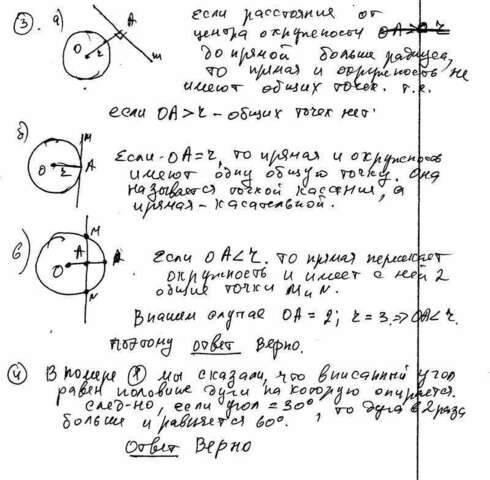 ③. а) если расстояние от
центра окружности OA > r
до прямой больше радиуса,
то прямая и окружность не
имеют общих точек. т.е.
если OA > r - общих точек нет.
O r A m
б) Если OA = r, то прямая и окружность
имеют одну общую точку. Она
называется точкой касания, а
прямая - касательной.
M O r A
в) Если OA < r. то прямая пересекает
окружность и имеет с ней 2
общие точки M и N.
M O A N
В нашем случае OA = 2; r = 3. ⇒ OA < r.
поэтому ответ верно.
④ В номере ① мы сказали, что вписанный угол
равен половине дуги на которую опирается.
след-но, если угол = 30°, то дуга в 2 раза
больше и равняется 60°.
Ответ Верно